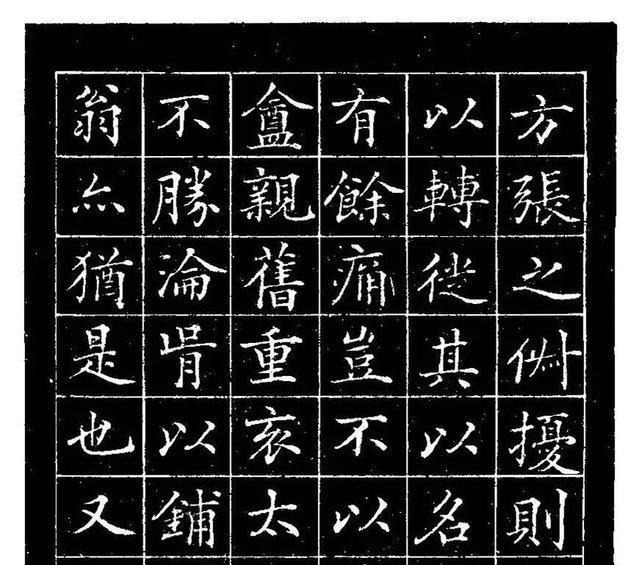 方張之擾則
以轉徙其以名
有餘痛豈不以
盦親舊重哀太
不勝淪胥以鋪
翁亦猶是也又